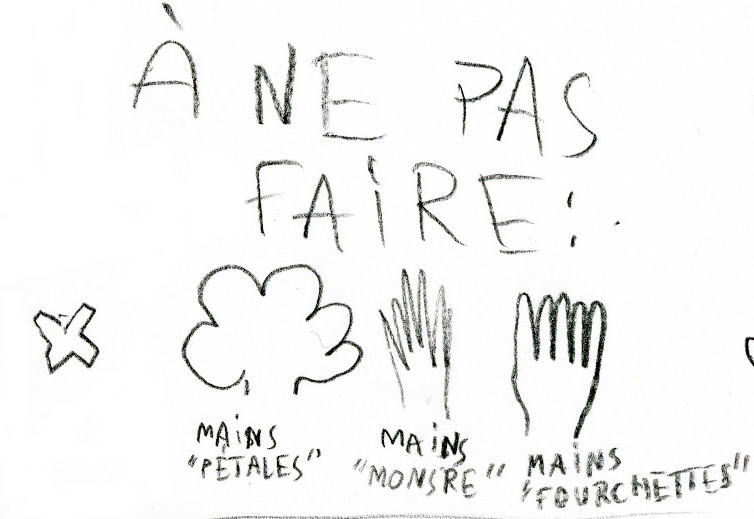 À NE PAS
FAIRE:
MAINS
"PÉTALES"
MAINS
"MONSRE"
MAINS
"FOURCHETTES"